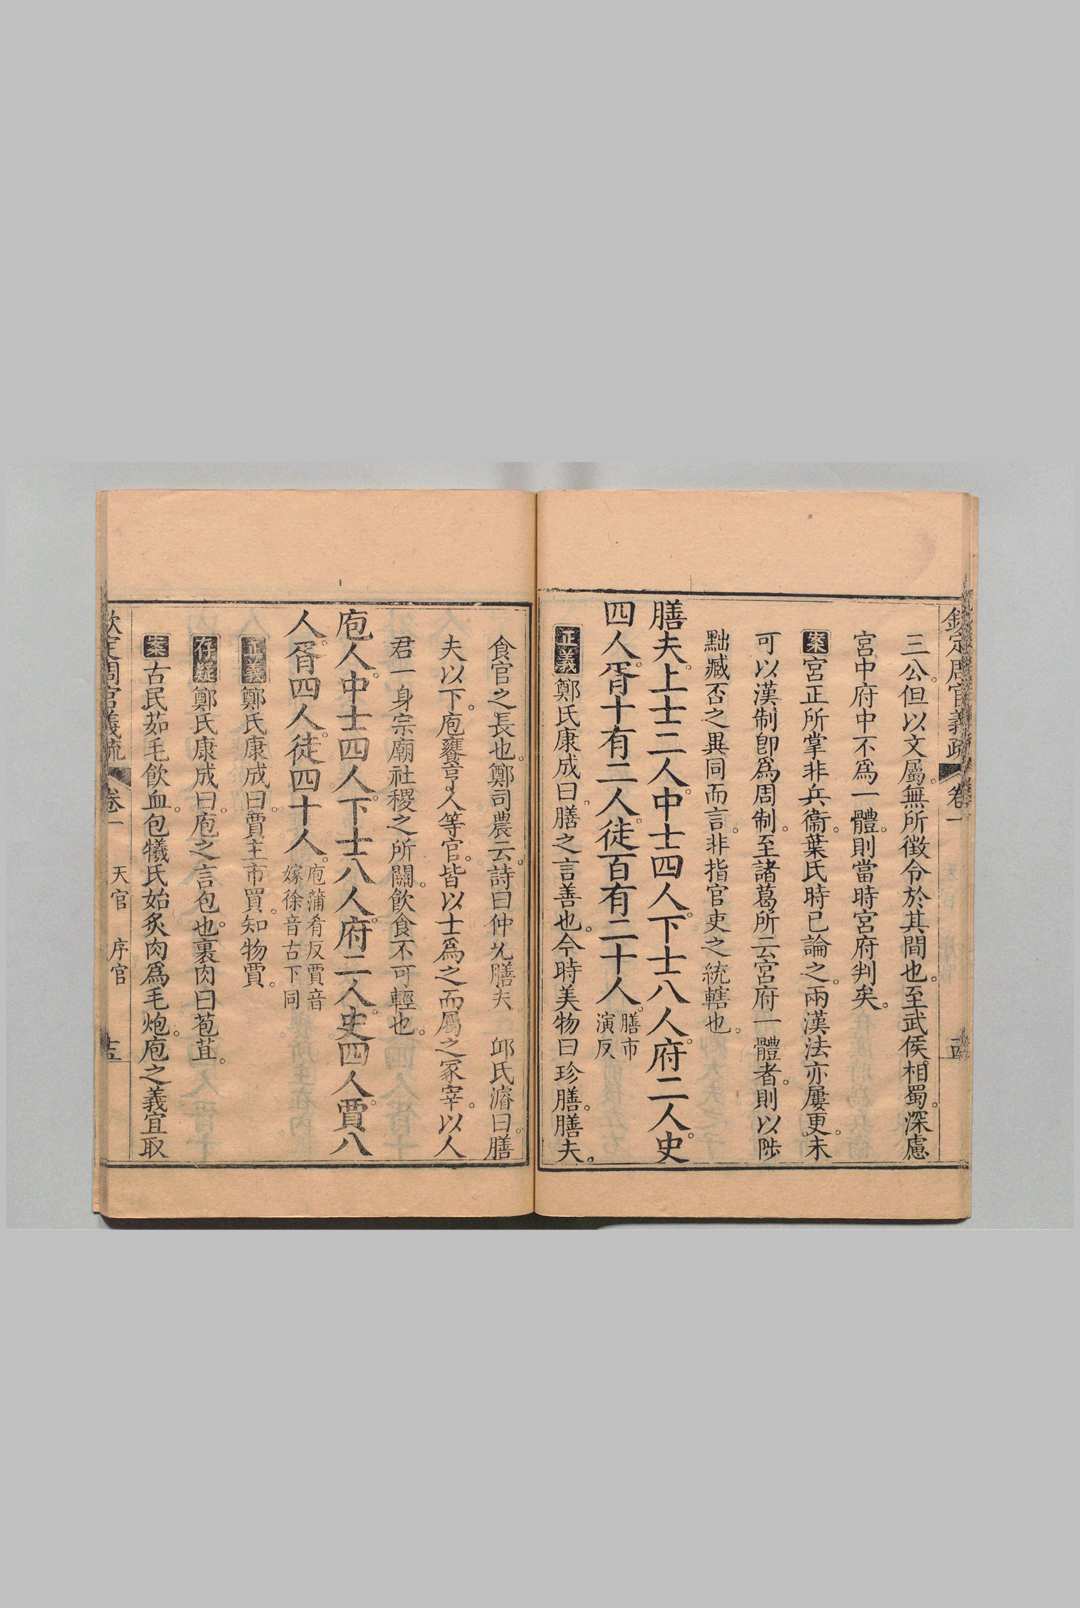 欽定周官義疏 卷一
三公但以文屬。無所徵令於其間也。至武侯相蜀。深慮
宮中府中不爲一體。則當時宮府判矣。
案宮正所掌非兵衞。葉氏時已論之。兩漢法亦屢更。未
可以漢制卽爲周制。至諸葛所云宮府一體者。則以陟
黜臧否之異同而言。非指官吏之統轄也。
膳夫。上士二人。中士四人。下士八人。府二人。史
四人。胥十有二人。徒百有二十人。膳市
演反
正義鄭氏康成曰。膳之言善也。今時美物曰珍膳。膳夫。
食官之長也。鄭司農云。詩曰仲允膳夫 邱氏濬曰。膳
夫以下。庖饔亨人等官。皆以士爲之。而屬之冢宰。以人
君一身宗廟社稷之所關。飲食不可輕也。
庖人。中士四人。下士八人。府二人。史四人。賈八
人。胥四人。徒四十人。庖蒲肴反賈音
嫁徐音古下同
正義鄭氏康成曰。賈主市買。知物賈。
存疑鄭氏康成曰。庖之言包也。裹肉曰苞苴。
案古民茹毛飲血。包犧氏始炙肉爲毛炮。庖之義宜取
欽定周官義疏 卷一 天官 序官